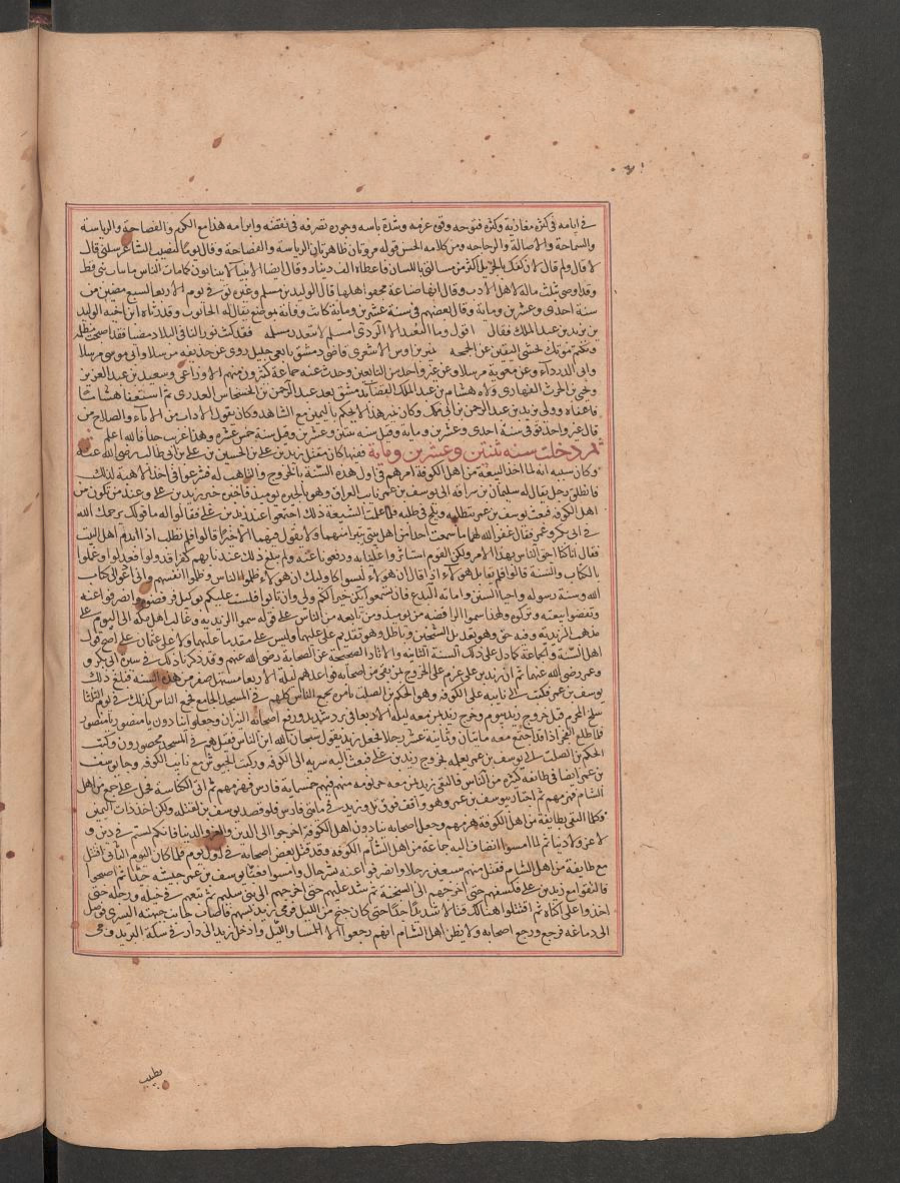 في ايامه في كثرة مغازيه وكثرة فتوحه وقوة عزمه وشدة باسه وجودة تصرفه في نقضه وابرامه هذا مع الكرم والفصاحة والرياسة
والسماحة والاصالة والرجاحه ومن كلامه الحسن قوله مروتان ظاهرتان الرياسة والفصاحة وقال يوما لنصيب الشاعر سلني قال
لا قال ولم قال لان كفك بالجزيل اكثر من مسالتي باللسان فاعطاه الف دينار وقال ايضا الانبيا لا يتثابون كما يتثاب الناس ما ثاب نبي قط
وقد اوصى بثلث ماله لاهل الادب وقال انها صناعة مجفو اهلها قال الوليد بن مسلم وغيره توفي يوم الاربعا لسبع مضين من
سنة احدى وعشرين ومايه وقال بعضهم في سنة عشرين ومايه كانت وفاته بموضع يقال له الحانوت وقد رثاه ابن اخيه الوليد
بن يزيد بن عبد الملك فقال اقول وما البعد الا الردى امسلم لا تبعدن مسلمه فقد كنت نورا لنا في البلاد مضيا فقد اصبحت مظلمه
ونكتم موتك نخشى اليقين عن الجمجمه نمير بن اوس الاشعري قاضي دمشق تابعي جليل روى عن حذيفه مرسلا وابي موسى مرسلا
وابي الدرداء وعن معوية مرسلا وعن غير واحد من التابعين وحدث عنه جماعة كثيرون منهم الاوزاعي وسعيد بن عبد العزيز
ويحيى بن الحرث الذماري ولاه هشام بن عبد الملك القضا بدمشق بعد عبد الرحمن بن الخشخاش العذري ثم استعفا هشاما
فاعفاه وولى يزيد بن عبد الرحمن بن ابي ملك وكان نمير هذا لا يحكم باليمين مع الشاهد وكان يقول الادب من الاباء والصلاح من
قال غير واحد توفي سنة احدى وعشرين وماية وقيل سنه ثنتين وعشرين وقيل سنة خمس عشره وهذا غريب جدا فالله اعلم
ثم دخلت سنة ثنتين وعشرين وماية ففيها كان مقتل زيد بن علي بن الحسين بن علي بن ابي طالب رضي الله عنه
وكان سببه انه لما اخذ البيعة من اهل الكوفة امرهم في اول هذه السنة بالخروج والتاهب له فشرعوا في اخذ الاهبة لذلك
فانطلق رجل يقال له سليمان بن سراقه الى يوسف بن عمر نايب العراق وهو بالحيره يوميذ فاخبره خبر زيد بن علي وعند من يكون من
اهل الكوفه فبعث يوسف بن عمر يتطلبه ويلح في طلبه فلما علمت الشيعة ذلك اجتمعوا عند زيد بن علي فقالوا له ما قولك يرحمك الله
في ابي بكر وعمر فقال غفر الله لهما ما سمعت احدا من اهل بيتي يتبرا منهما ولا يقول فيهما الا خيرا قالوا فلم تطلب اذا بدم اهل البيت
فقال انا كنا احق الناس بهذا الامر ولكن القوم استاثروا علينا به ودفعونا عنه ولم يبلغ ذلك عندنا بهم كفرا قد ولوا فعدلوا وعملوا
بالكتاب والسنة قالوا فلم تقاتل هولاء اذا قال ان هولاء ليسوا كاوليك ان هولاء ظلموا الناس وظلموا انفسهم واني ادعو الى كتاب
الله وسنة رسوله واحيا السنن واماته البدع فان تسمعوا يكن خيرا لكم ولي وان تابوا فلست عليكم بوكيل فرفضوه وانصرفوا عنه
ونقضوا بيعته وتركوه ولهذا سموا الرافضه من يوميذ ومن تابعه من الناس على قوله سموا الزيديه وغالب اهل مكه الى اليوم على
مذهب الزيدية وفيه حق وهو تعديل الشيخين وباطل وهو تقديم علي عليهما وليس علي مقدما عليهما ولا على عثمان على اصح قول
اهل السنة والجماعة كما دل على ذلك السنة الثابته والاثار الصحيحة عن الصحابة رضي الله عنهم وقد ذكرنا ذلك في سيرة ابي بكر و
وعمر رضي الله عنهما ثم ان زيد بن علي عزم على الخروج بمن بقي من اصحابه فواعدهم ليلة الاربعا مستهل صفر من هذه السنة فبلغ ذلك
يوسف بن عمر فكتب الى نايبه على الكوفه وهو الحكم بن الصلت يامره بجمع الناس كلهم في المسجد الجامع فجمع الناس كذلك في يوم الثلثا
سلخ المحرم قبل خروج زيد بيوم وخرج زيد بمن معه ليلة الاربعا في برد شديد ورفع اصحابه النيران وجعلوا ينادون يا منصور يا منصور
فلما طلع الفجر اذا قد اجتمع معه مايتان وثمانية عشر رجلا فجعل زيد يقول سبحان الله اين الناس فقيل هم في المسجد محصورون وكتب
الحكم بن الصلت الى يوسف بن عمر يعلمه بخروج زيد بن علي فبعث اليه سريه الى الكوفه وركبت الجيوش مع نايب الكوفه وجا يوسف
بن عمر ايضا في طايفه كثيرة من الناس فالتقى زيد بمن معه جرثومه منهم فيهم خمسمايه فارس فهزمهم ثم اتى الكناسة فحمل على جمع من اهل
الشام فهزمهم ثم اجتاز بيوسف بن عمر وهو واقف فوق تل وزيد في مايتي فارس فلو قصد يوسف بن عمر لقتله ولكن اخذ ذات اليمين
وكلما التقى بطايفة من اهل الكوفة هزمهم وجعل اصحابه ينادون يا اهل الكوفة اخرجوا الى الدين والعز والدنيا فانكم لستم في دين و
لا عز ولا دنيا ثم لما امسوا انضاف اليه جماعة من اهل الشام الكوفه وقد قتل بعض اصحابه في اول يوم فلما كان اليوم الثاني اقتتل
مع طايفة من اهل الشام فقتل منهم سبعين رجلا وانصرفوا عنه بشر حال وامسوا فعبا يوسف بن عمر جيشه جدا ثم اصبحوا
فالتقوا مع زيد بن علي فكسفهم حتى اخرجهم الى السبخة ثم شد عليهم حتى اخرجهم الى بني سليم ثم تبعهم في خيله ورجله حتى
اخذوا على المسناه ثم اقتتلوا هنالك قتالا شديدا جدا حتى كان جنح من الليل فرمي زيد بسهم فاصاب جانب جبهته اليسرى فوصل
الى دماغه فرجع ورجع اصحابه ولا يظن اهل الشام انهم رجعوا الا للمسا والليل وادخل زيد الى دار في سكة البريد وجي
بطبيب